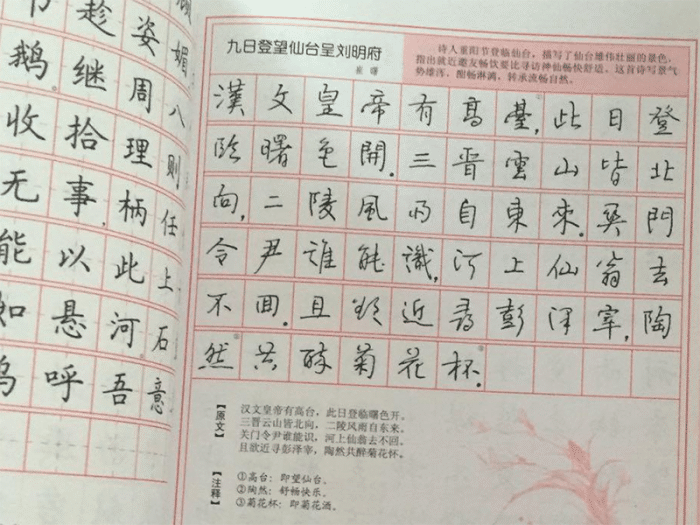 趁姿媚
鹅。继周八
收拾理则
无事，柄任
能以此上
如悬河。石
呜呼吾意
九日登望仙台呈刘明府
崔 曙
诗人重阳节登临仙台，描写了仙台雄伟壮丽的景色，
指出就近邀友畅饮要比寻访神仙畅快舒适。这首诗写景气
势雄浑，酣畅淋漓，转承流畅自然。
漢文皇帝有高臺，此日登
臨曙色開。三晋雲山皆北
向，二陵風雨自東來。關門
令尹誰能識，河上仙翁去
不回。且欲近尋彭澤宰，陶
然共醉菊花杯。
【原文】
汉文皇帝有高台，此日登临曙色开。
三晋云山皆北向，二陵风雨自东来。
关门令尹谁能识，河上仙翁去不回。
且欲近寻彭泽宰，陶然共醉菊花杯。
【注释】
①高台：即望仙台。
②陶然：舒畅快乐。
③菊花杯：即菊花酒。